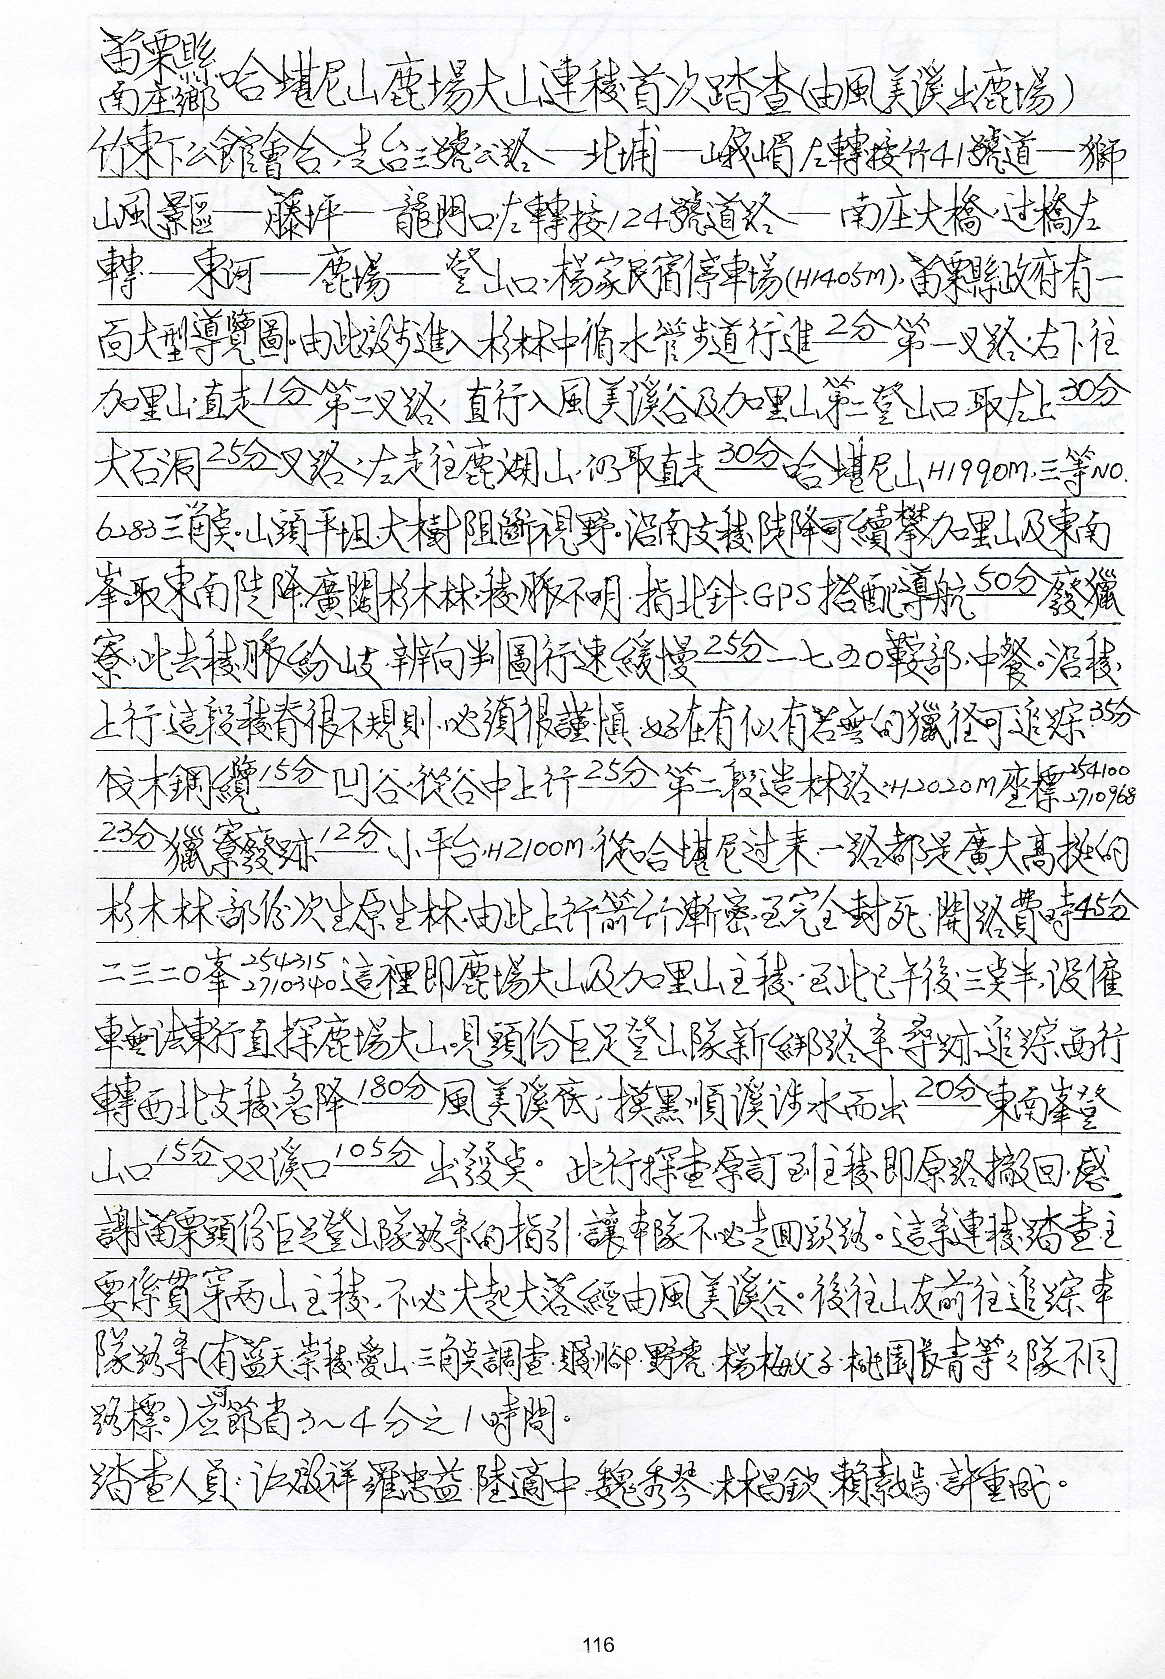 苗栗縣南庄鄉哈堪尼山鹿場大山連稜首次踏查(由風美溪出鹿場)
竹東下公館會合,走台三號公路—北埔—峨嵋左轉接竹41號道—獅
山風景區—藤坪—龍門口左轉接124號道路—南庄大橋,过橋左
轉—東河—鹿場—登山口,楊家民宿停車場(H1405M),苗栗縣政府有一
面大型導覽圖。由此設步進入杉林中循水管步道行進2分第一叉路,右下往
加里山,直走1分第二叉路,直行入風美溪谷及加里山第二登山口取左上30分
大石洞25分叉路,左走往鹿湖山,仍取直走30分哈堪尼山H1990M,三等NO.
6283三角点。山頭平坦,大樹阻斷視野。沿南支稜陡降可續攀加里山及東南
峯取東南陡降,廣闊杉木林,稜脈不明,指北針、GPS搭配導航50分廢獵
寮,此去稜脈紛歧,辨向判圖行速緩慢25分一七五0鞍部,中餐。沿稜
上行,這段稜脊很不規則,必須很謹慎,好在有似有若無的獵径可追踪35分
伐木鋼纜15分凹谷,從谷中上行25分第二段造林路,H2020M座標254100 2710968
23分獵寮廢跡12分小平台,H2100M,從哈堪尼过来一路都是廣大高挺的
杉木林,部份次生原生林,由此上行箭竹漸密,至完全封死,開路費時45分
二三二0峯254315 2710340這裡即鹿場大山及加里山主稜,至此已午後三点半,設僱
車無法東行直探鹿場大山。見頭份巨足登山隊新綁路条尋跡追踪西行
轉西北支稜急降180分風美溪底,摸黑順溪涉水而出20分東南峯登
山口15分双溪口105分出發点。此行探查原訂到主稜即原路撤回,感
謝苗栗頭份巨足登山隊路条的指引,讓本隊不必走回頭路。這条連稜踏查主
要係貫穿两山主稜,不必大起大落經由風美溪谷。後往山友前往追踪本
隊路条(有藍天,崇稜,愛山,三角点調查,賤腳,野虎,楊梅父子,桃園長青等々隊不同
路標。)應可節省3~4分之1時間。
踏查人員:江啟祥,羅忠益,陸適中,魏秀琴,林昌銳,賴素嫣,許重成。
116